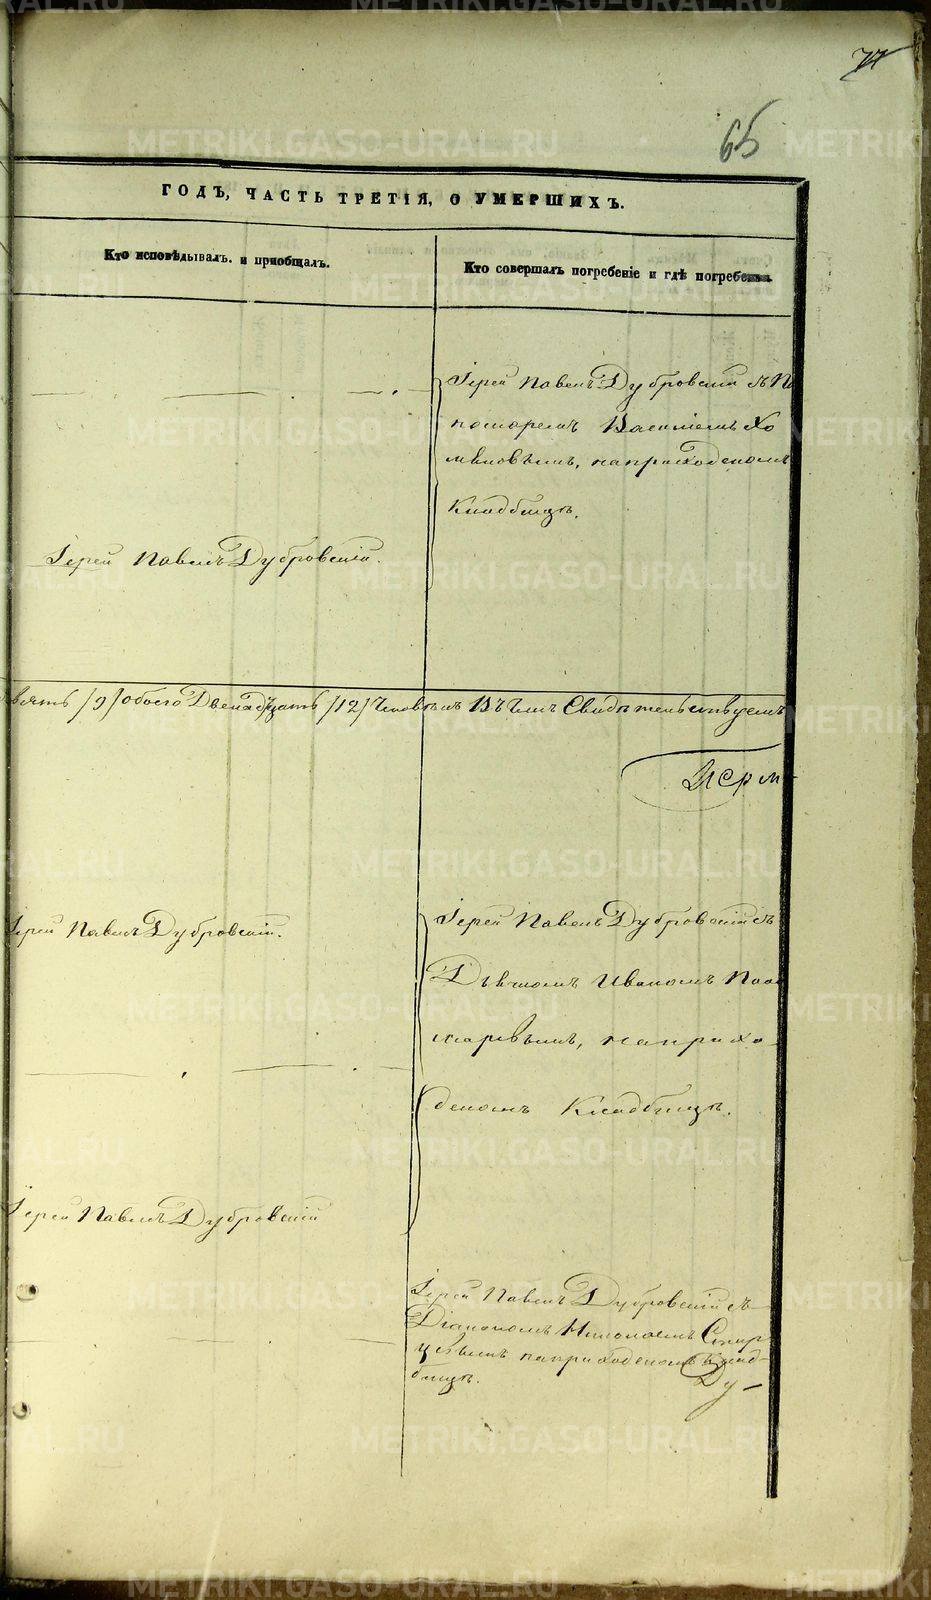 77
65
ГОДЪ, ЧАСТЬ ТРЕТІЯ, О УМЕРШИХЪ.
Кто исповѣдывалъ и пріобщалъ.
Кто совершалъ погребеніе и гдѣ погребены.
Іерей Павелъ Дубровскій съ П
номаремъ Василіемъ Хо
мяковымъ, на приходскомъ
Кладбищѣ.
Іерей Павелъ Дубровскій.
вять /9/ обоего Двенадцать /12/ Человѣкъ Въ чемъ Свидѣтельствуемъ
Іерей Павелъ Дубровскій.
Іерей Павелъ Дубровскій съ
Дьячкомъ Иваномъ
на прихо
дскомъ Кладбищѣ.
Іерей Павелъ Дубровскій
Іерей Павелъ Дубровскій съ
Діакономъ Николаемъ
на приходскомъ Клад-
бищѣ.
Ду-
METRIKI.GASO-URAL.RU